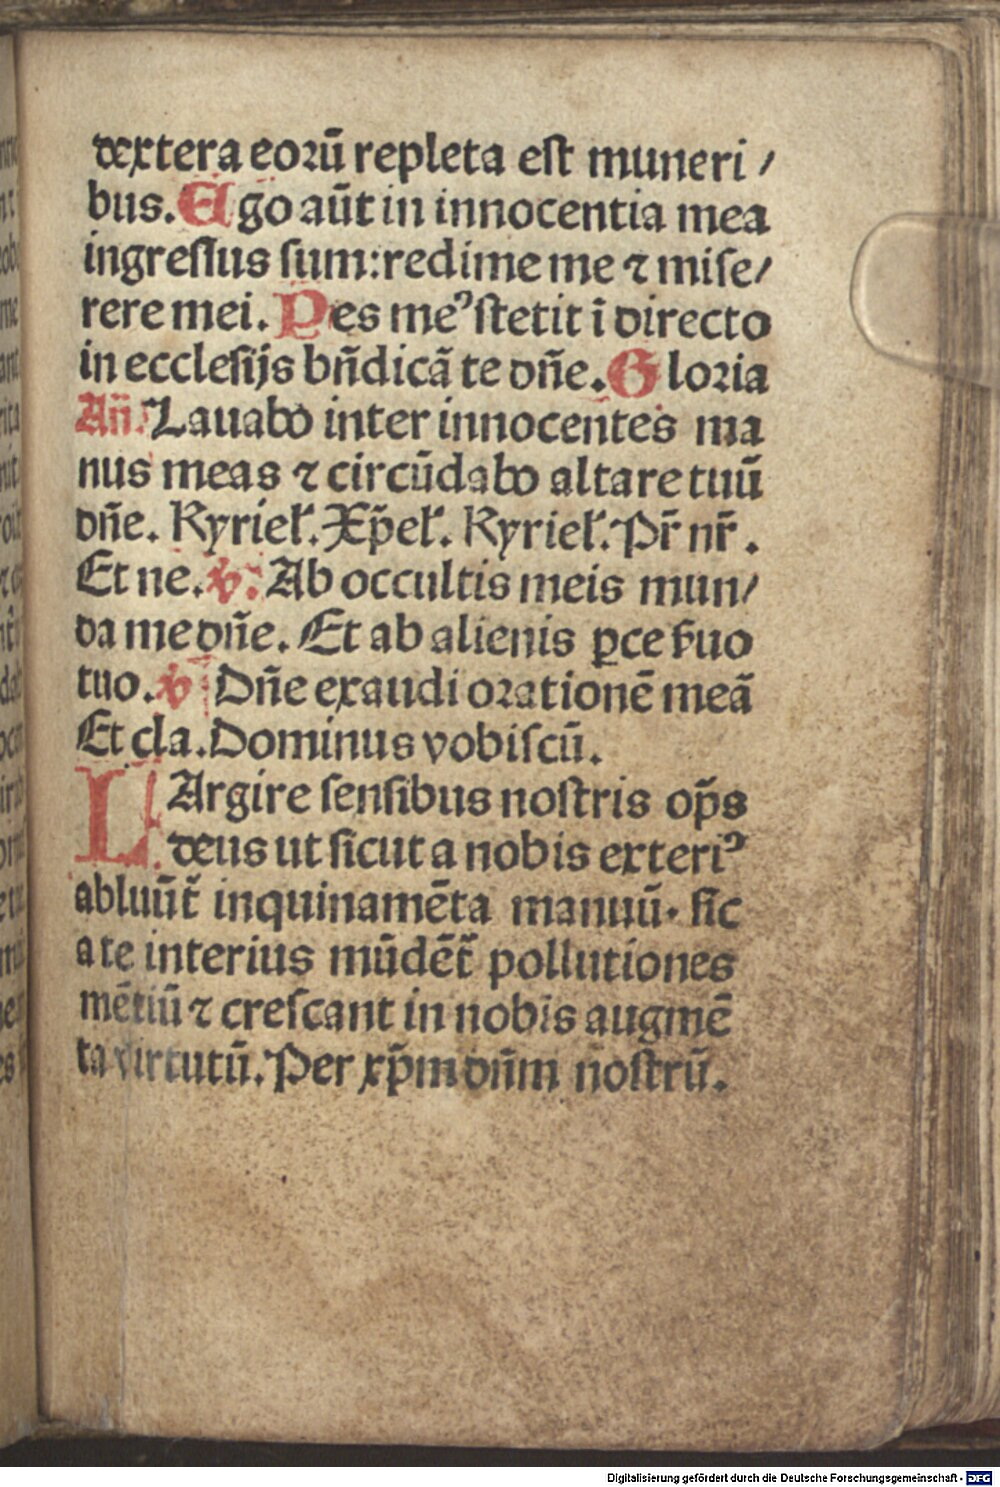 dextera eorū repleta eſt muneri/
bus. Ego aūt in innocentia mea
ingreſſus ſum: redime me ⁊ miſe/
rere mei. Pes meꝰ ſtetit ī directo
in eccleſijs bn̄dicā te dn̄e. Gloria
An̄. Lauabo inter innocentes ma
nus meas ⁊ circūdabo altare tuū
dn̄e. Kyriel̓. Xp̄el̓. Kyriel̓. Pr̄ nr̄.
Et ne. ℣. Ab occultis meis mun/
da me dn̄e. Et ab alienis ꝑce ẜuo
tuo. ℣ Dn̄e exaudi orationē meā
Et cla. Dominus vobiſcū.
LArgire ſenſibus noſtris op̄s
deus ut ſicut a nobis exteriꝰ
abluūt̄ inquinamēta manuū. ſic
a te interius mūdēt̄ pollutiones
mētiū ⁊ creſcant in nobis augmē
ta virtutū. Per xp̄m dn̄m noſtrū.
Digitalisierung gefördert durch die Deutsche Forschungsgemeinschaft - DFG